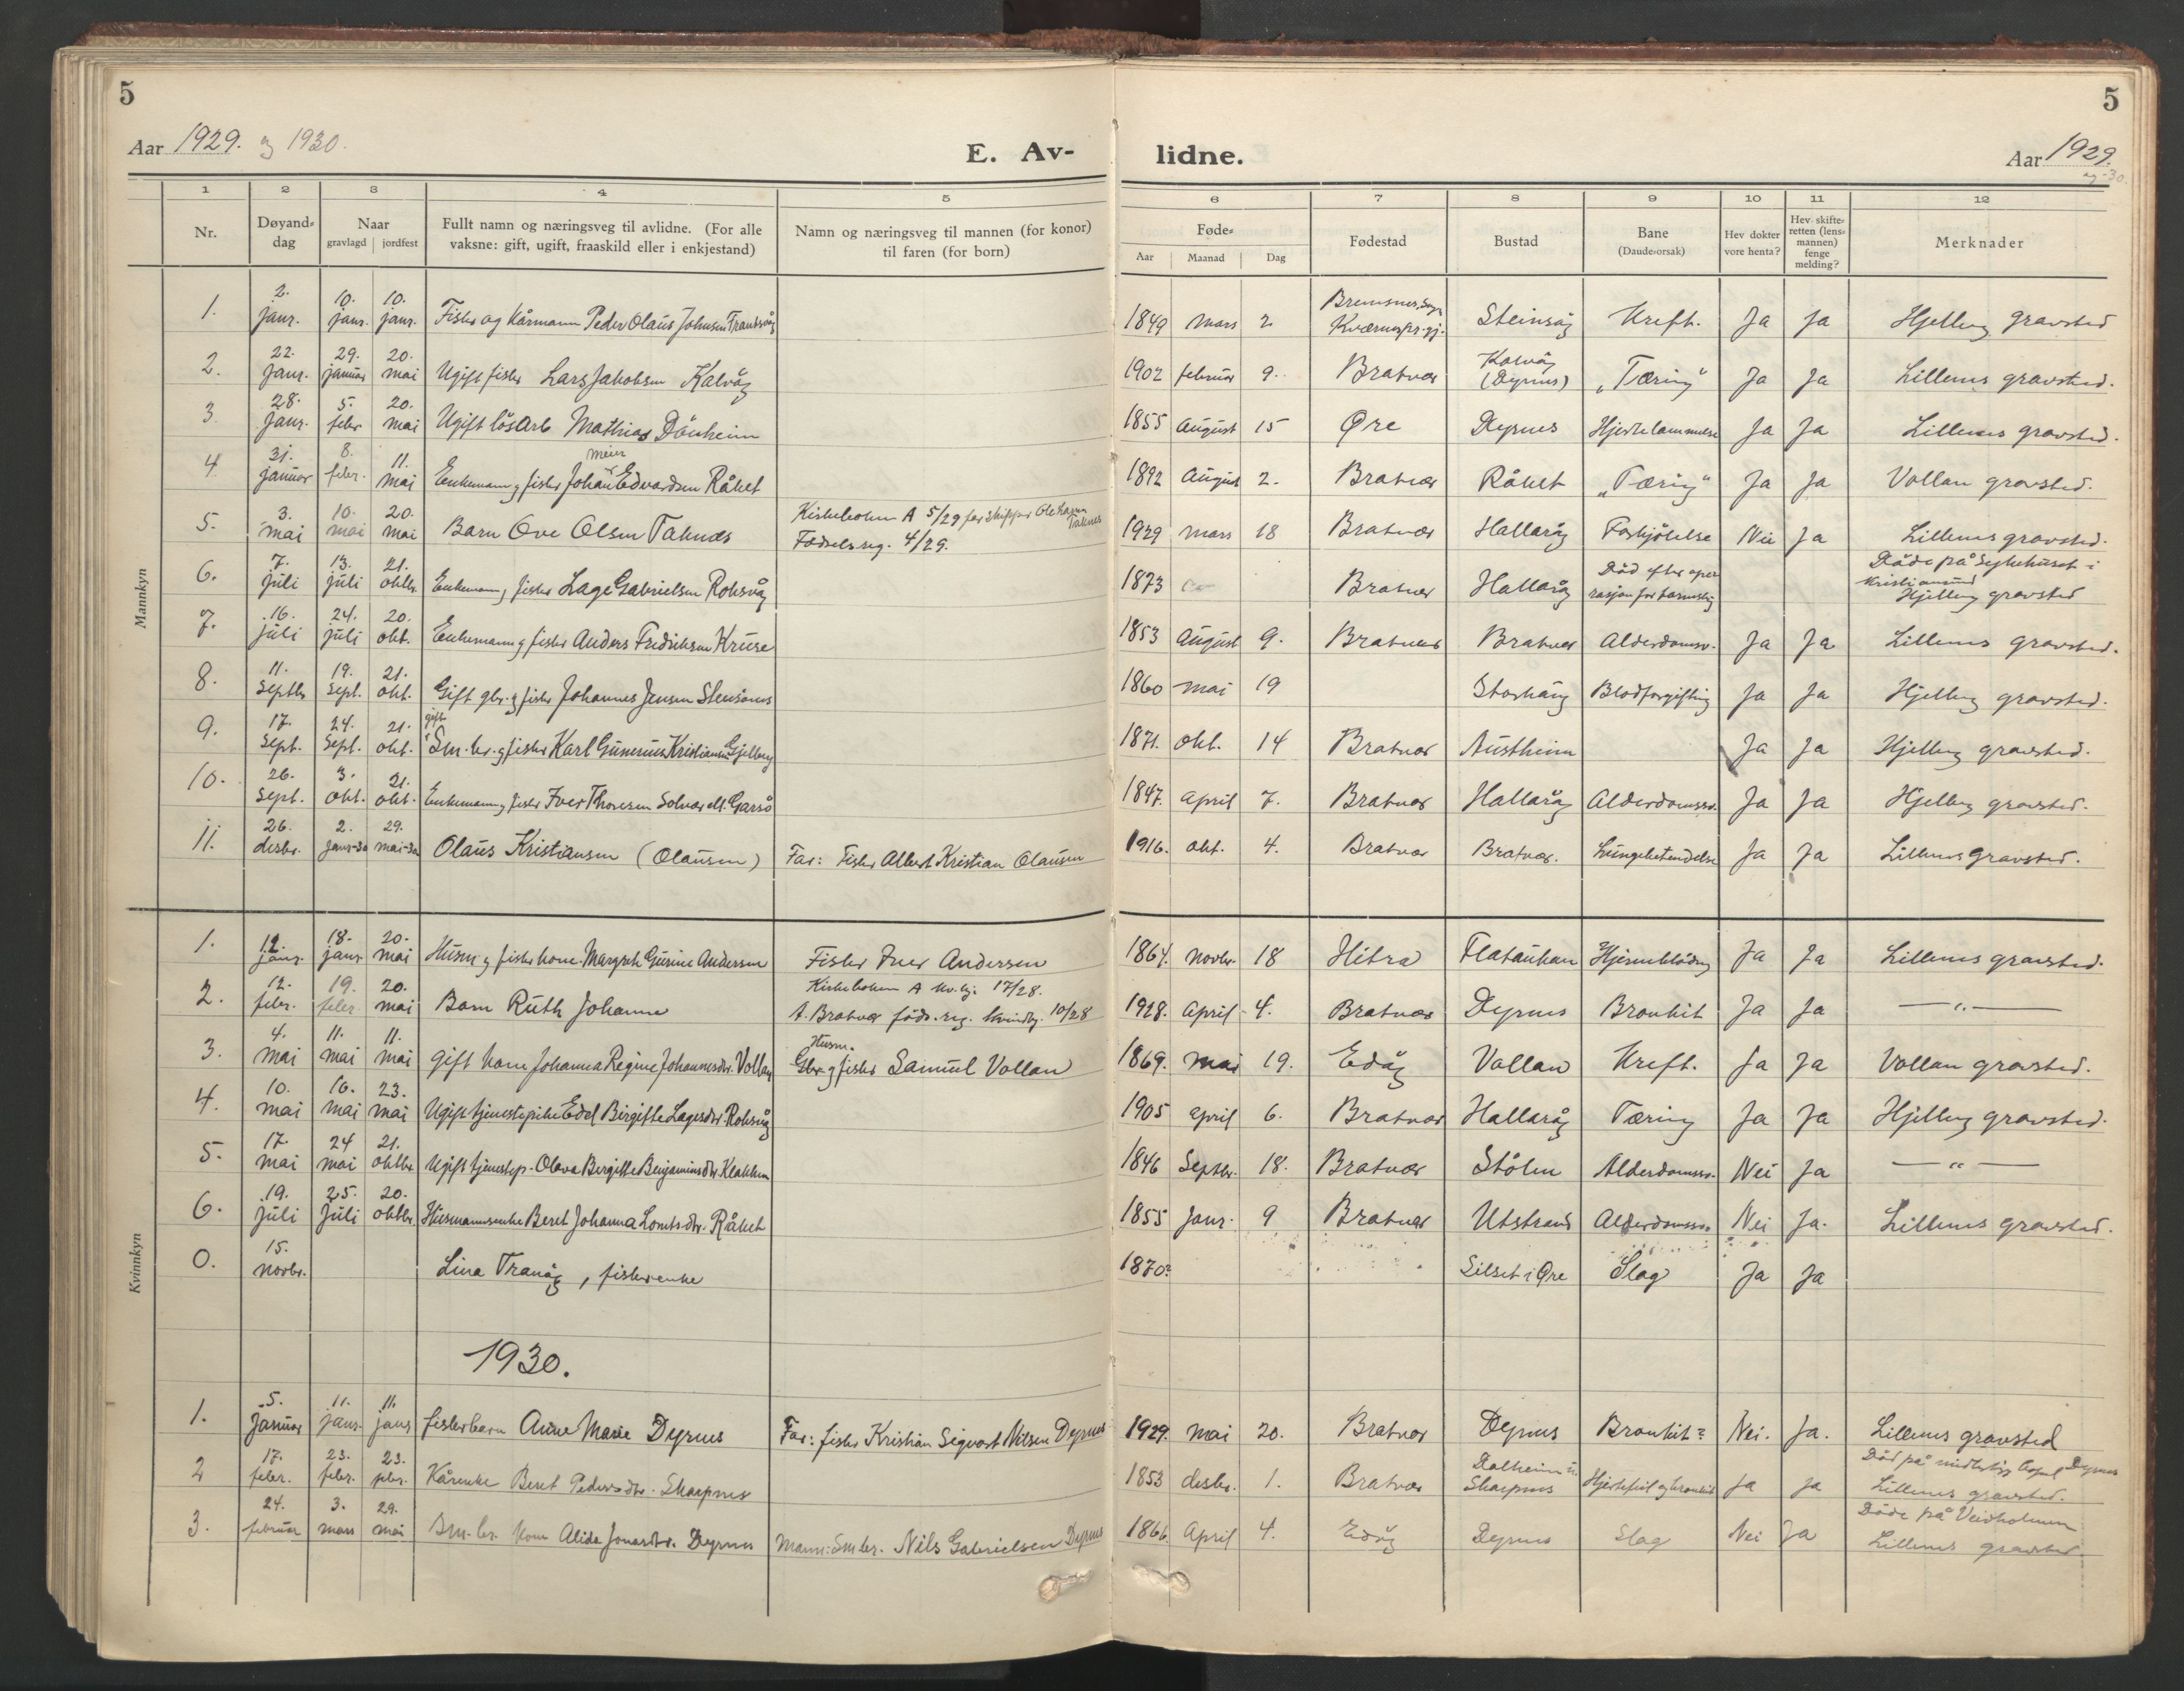 5
5
Aar 1929. og 1930.
E. Av-
lidne.
Aar 1929.
og -30.
1 2 3 4 5 6 7 8 9 10 11 12
Nr.
Døyand-
dag
Naar
gravlagd | jordfest
Fullt namn og næringsveg til avlidne. (For alle
vaksne: gift, ugift, fraaskild eller i enkjestand)
Namn og næringsveg til mannen (for konor)
til faren (for born)
Føde-
Aar Maanad Dag
Fødestad
Bustad
Bane
(Daude-orsak)
Hev dokter
vore henta?
Hev skifte-
retten (lens-
mannen)
fenge
melding?
Merknader
Mannkyn
1. 2. janr. 10. janr. 10. janr. Fisker og kårmann Peder Olaus Johnsen 1849 mars 2. Bremsnes Kværnes pr.gj. Steinsåg Kreft. Ja Ja Hjelling gravsted
2. 22. janr. 29. januar 20. mai Ugift fisker Lars Jakobsen Kalvåg 1902 februar 9. Bratvær Kalvåg (Dyrnes) "Tæring" Ja Ja Lillenes gravsted.
3. 28. janr. 5. febr 20. mai Ugift lösarb Mathias Dönheim 1855 August 15 Øre Dyrnes Hjertelammelse Ja Ja Lillenes gravsted.
4 31. januar 8. febr. 11. mai Enkemann og fisker Johan Meier Edvardsen Råket 1892 August 2. Bratvær Råket "Tæring" Ja Ja Vollan gravsted.
5. 3. mai 10. mai 20. mai Barn Ove Olsen Taknes Kirkeboken A 5/29 far skipper Ole Taknes Födselsreg. 4/29. 1929 mars 18 Bratvær Hallaråg Forkjölelse Nei Ja Lillenes gravsted.
6. 7. juli 13. juli 21. oktbr. Enkemann og fisker Lage Gabrielsen Roksvåg 1873 Bratvær Hallaråg Död efter operasjon for Döde på Sykehuset i Kristiansund Hjelling gravsted
7. 16. juli 24. juli 20. okt. Enkemann og fisker Anders Fredriksen Kruse 1853 August 9. Bratvær Bratvær Alderdomssv. Ja Ja Lillenes gravsted.
8. 11. septbr 19. sept. 21. okt. Gift gbr. og fisker Johannes Jensen 1860 mai 19 Blodforgiftning Ja Ja Hjelling gravsted.
9. 17. sept. 24. sept. 21. okt. gift Sm.br. og fisker Karl Gunerius Kristiansen Gjelberg 1871. okt. 14 Bratvær Austheim Ja Ja Hjelling gravsted.
10. 26. sept. 3. okt. 21. okt. Enkemann og fisker Iver Thoresen Solvær elt. Garsö 1847. april 7. Bratvær Hallaråg Alderdomssv. Ja Ja Hjelling gravsted.
11. 26. desbr. 2. janr-30 29. mai-30 Olaus Kristiansen (Olausen) Far: Fisker Albert Kristian Olausen 1916. okt. 4. Bratvær Bratvær. Lungebetendelse Ja Ja Lillenes gravsted.
Kvinnkyn
1. 12. janr. 18. janr 20. mai Husm og fisker kone Margrete Gurine Andersen Fisker Iver Andersen 1864. novbr. 18 Hitra Flatauken Hjerneblödning Ja Ja Lillenes gravsted.
2. 12. febr. 19. febr. 20. mai Barn Ruth Johanne Kirkeboken A kv.kj. 17/28. A. Bratvær föds.reg. kvindkj. 10/28 1928. april 4. Bratvær Dyrnes Bronkit Ja Ja —"—
3. 4. mai 11. mai 11. mai gift kone Johanna Regine Johannesdtr. Vollan Husm. Gbr. og fisker Samuel Vollan 1869. mai 19. Edöy Vollan Kreft. Ja Ja Vollan gravsted.
4. 10. mai 16. mai 23. mai Ugift tjenestepike Edel Birgitte Lagesdtr. Roksvåg 1905 april 6. Bratvær Hallaråg Tæring Ja Ja Hjelling gravsted.
5. 17. mai 24 mai 21. oktbr. Ugift tjenestep. Olava Bergitte Benjaminsdtr Klakken 1846 Septbr. 18. Bratvær Stölen Alderdomssv. Nei Ja —"—
6. 19. juli 25. juli 20. oktbr. Husmannsenke Beret Johanna Råket 1855 Janr. 9 Bratvær Utstrand Alderdomssv. Nei Ja. Lillenes gravsted.
0. 15. novbr. Lina Tranåg, fiskerenke 1870? Silset i Øre Slag Ja Ja
1930.
1. 5. Januar 11. janr. 11. janr fiskerbarn Anne Marie Dyrnes Far: fisker Kristian Sigvart Nilsen Dyrnes 1929. mai 20. Bratvær Dyrnes Bronkit? Nei. Ja. Lillenes gravsted
2 17. febr. 23. febr. 23. febr. Kårenke Beret Pedersdtr. Skarpnes 1853 desbr. 1. Bratvær Dalheim Skarpnes Hjertefeil og bronkit Ja Ja Död på Dyrnes Lillenes gravsted.
3. 24. februar 3. mars 29. mai Sm.br. kone Alida Jonasdtr. Dyrnes Mann: Sm br. Nils Gabrielsen Dyrnes 1866. April 4. Edöy Dyrnes Slag Nei Ja Döde på Veidholmen Lillenes gravsted.